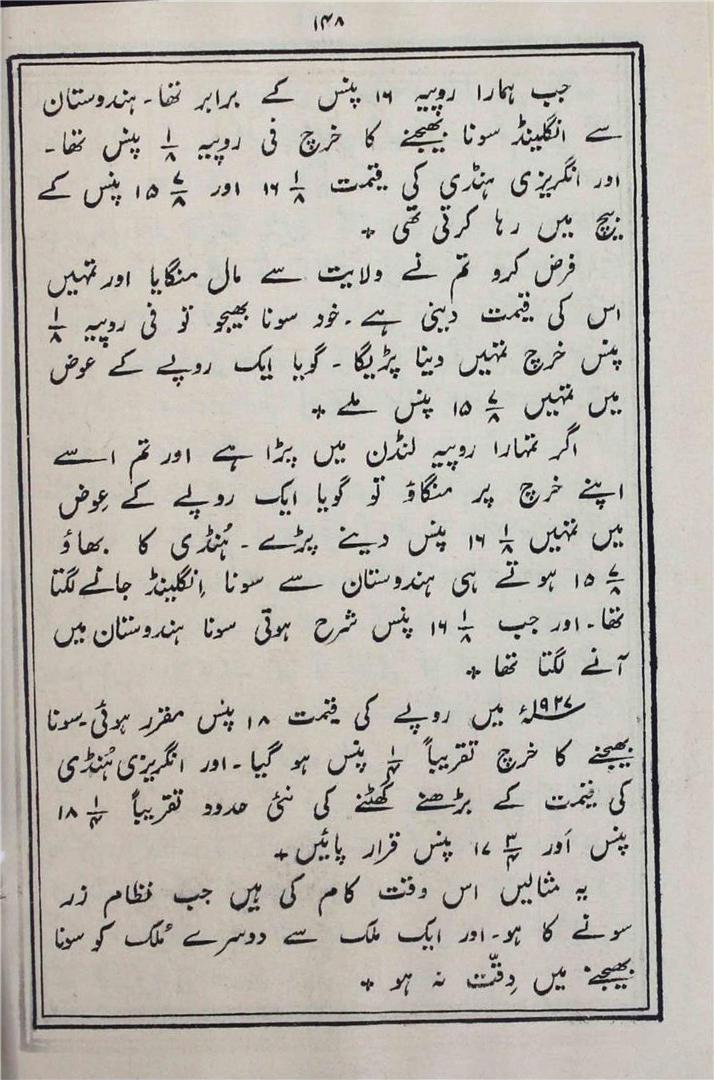 ۱۴۸
جب ہمارا روپیہ ۱۶ پنس کے برابر تھا۔ ہندوستان
سے انگلینڈ سونا بھیجنے کا خرچ فی روپیہ ۱/۸ پنس تھا۔
اور انگریزی ہنڈی کی قیمت ۱۶ ۱/۸ اور ۱۵ ۷/۸ پنس کے
بیچ میں رہا کرتی تھی *
فرض کرو تم نے ولایت سے مال منگایا اور تمہیں
اس کی قیمت دینی ہے۔ خود سونا بھیجو تو فی روپیہ ۱/۸
پنس خرچ تمہیں دینا پڑیگا۔ گویا ایک روپے کے عوض
میں تمہیں ۱۵ ۷/۸ پنس ملے *
اگر تمہارا روپیہ لنڈن میں پڑا ہے اور تم اسے
اپنے خرچ پر منگاؤ تو گویا ایک روپے کے عِوض
میں تمہیں ۱۶ ۱/۸ پنس دینے پڑے۔ ہُنڈی کا بھاؤ
۱۵ ۷/۸ ہوتے ہی ہندوستان سے سونا اِنگلینڈ جانے لگتا
تھا۔ اور جب ۱۶ ۱/۸ پنس شرح ہوتی سونا ہندوستان میں
آنے لگتا تھا *
۱۹۲۷ء میں روپے کی قیمت ۱۸ پنس مقرر ہوئی۔ سونا
بھیجنے کا خرچ تقریباً ۱/۴ پنس ہو گیا۔ اور انگریزی ہُنڈی
کی قیمت کے بڑھنے گھٹنے کی نئی حدود تقریباً ۱۸ ۱/۴
پنس اَور ۱۷ ۳/۴ پنس قرار پائیں *
یہ مثالیں اس وقت کام کی ہیں جب نظام زر
سونے کا ہو۔ اور ایک ملک سے دوسرے مُلک کو سونا
بھیجنے میں دِقّت نہ ہو *